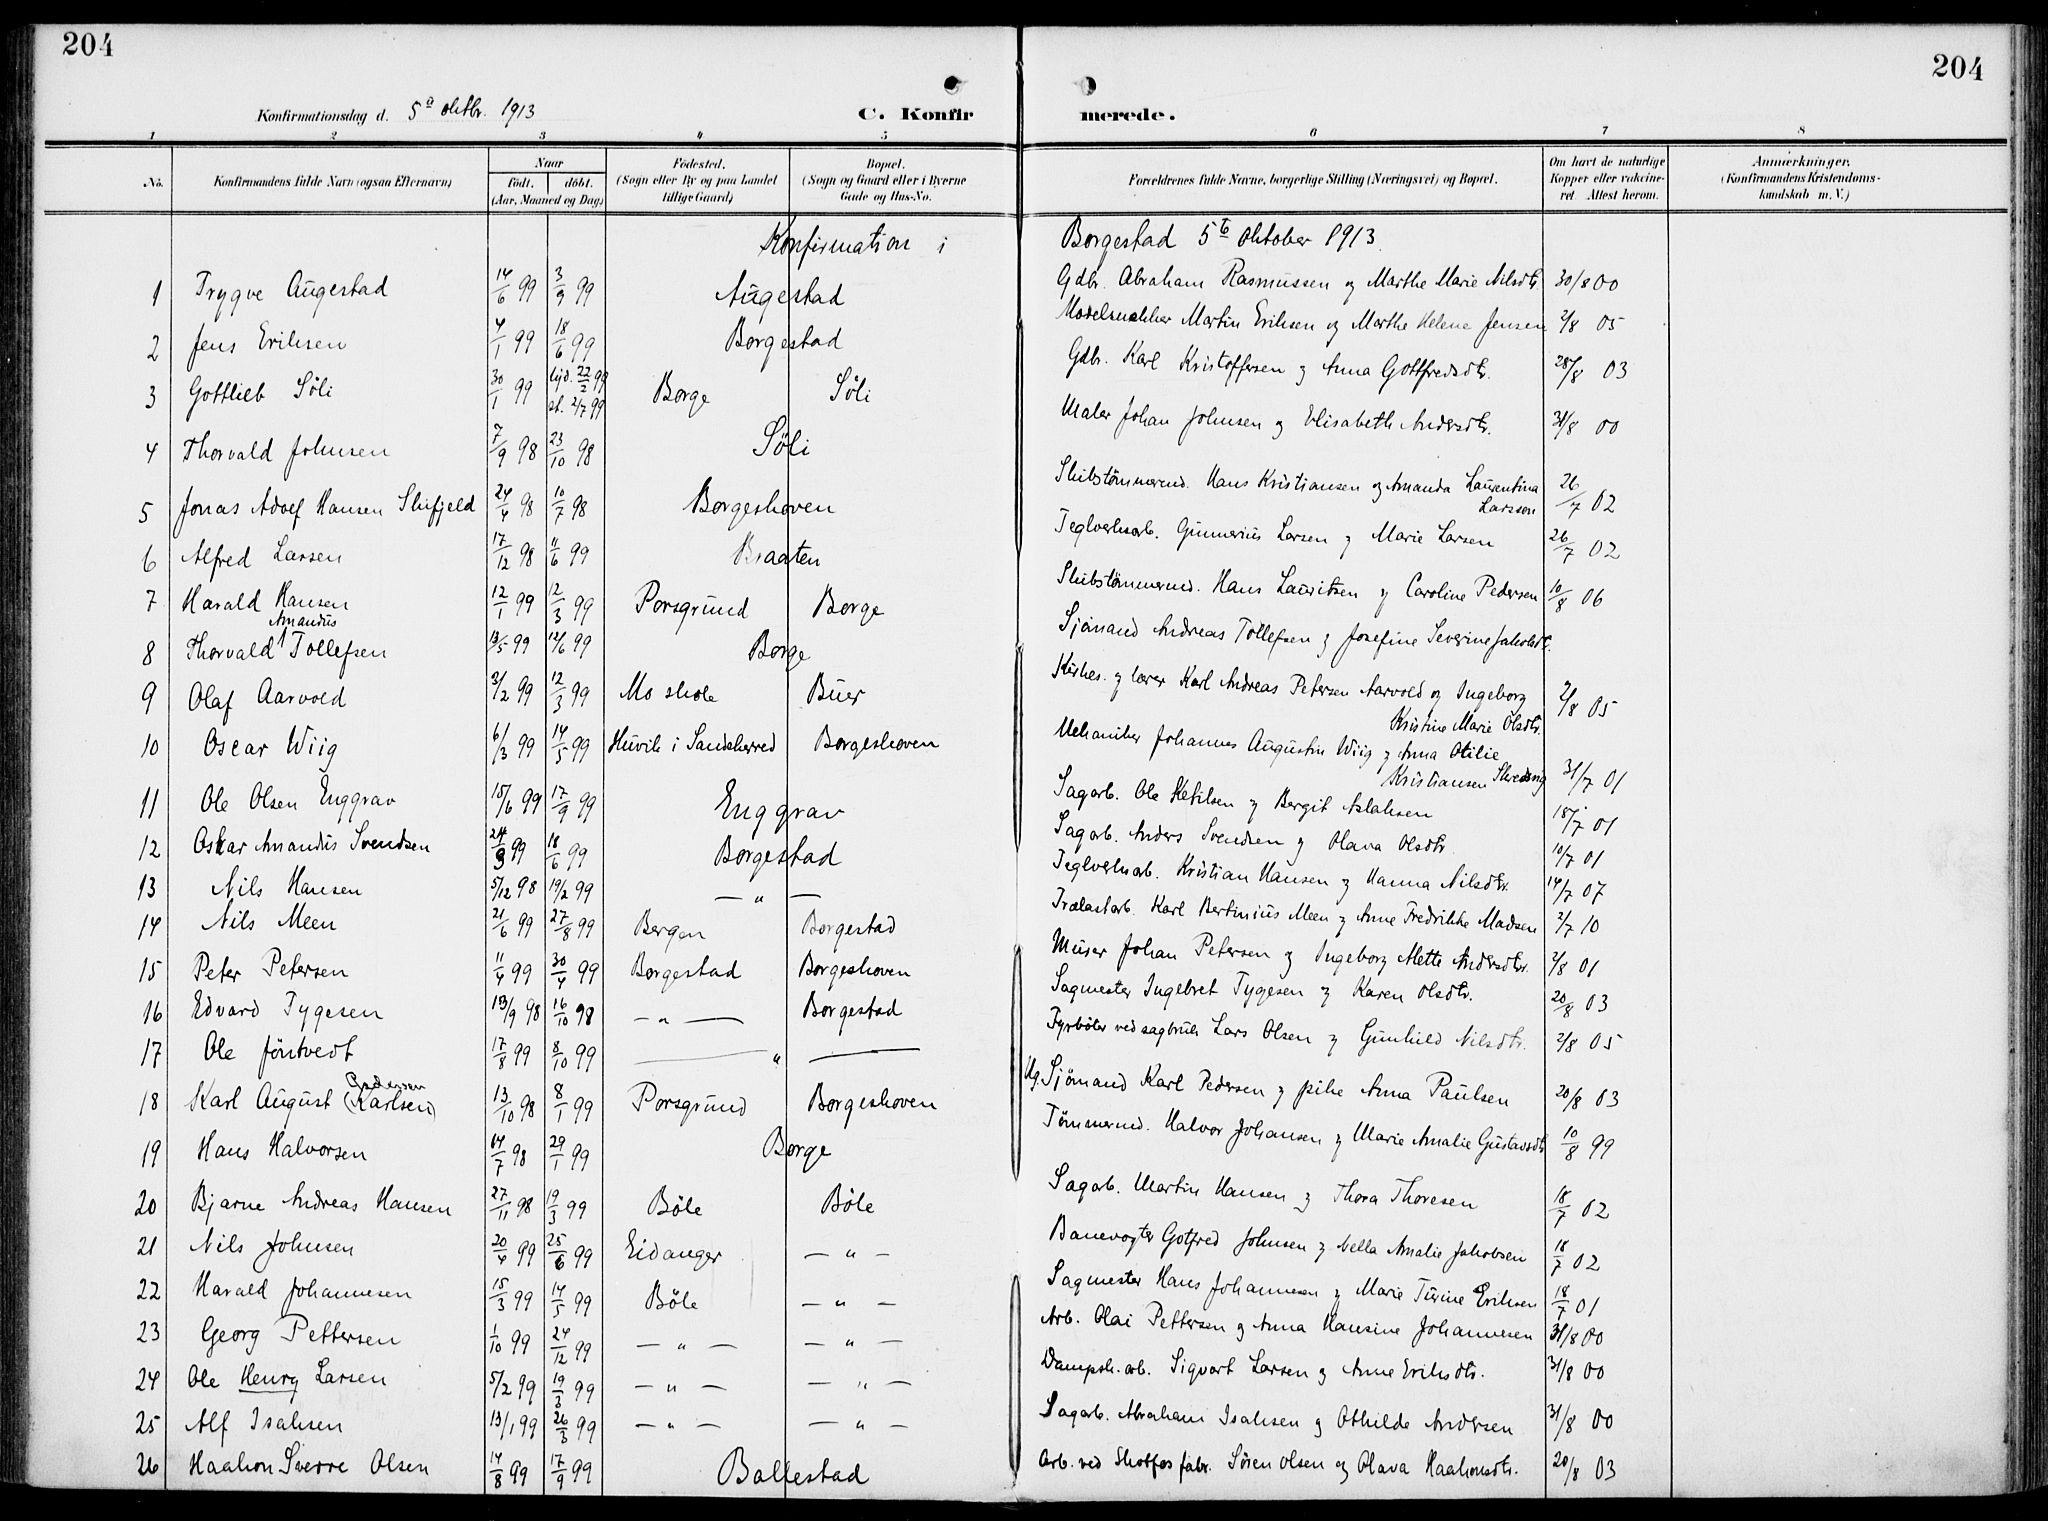 204
204
Konfirmationsdag d. 5te oktbr. 1913
C. Konfirmerede.
1 2 3 4 5 6 7 8
No. Konfirmandens fulde Navn (ogsaa Efternavn) Naar født. døbt. (Aar, Maaned og Dag) Fødested. (Sogn eller By og paa Landet tillige Gaard) Bopæl. (Sogn og Gaard eller i Byerne Gade og Hus-No. Forældrenes fulde Navne, borgerlige Stilling (Næringsvei) og Bopæl. Om havt de naturlige Kopper eller vakcineret. Attest herom. Anmærkninger. (Konfirmandens Kristendomskundskab m. V.)
Konfirmation i Borgestad 5te Oktober 1913.
1 Trygve Augestad 14/6 99 3/9 99 Augestad Gdbr. Abraham Rasmussen og Marthe Marie Nilsdtr. 30/8 00
2 Jens Eriksen 4/1 99 18/6 99 Borgestad Modelsnekker Martin Eriksen og Marthe Helene Jensen 2/8 05
3 Gottlieb Söli 30/1 99 hjd. 22/2 99 st. 2/7 99 Borge Söli Gdbr. Karl Kristoffersen og Anna Gottfredsdtr. 28/8 03
4 Thorvald Johnsen 7/9 98 23/10 98 Söli Maler Johan Johnsen og Elisabeth Andersdtr. 31/8 00
5 Jonas Adolf Hansen Skifjeld 24/4 98 10/7 98 Borgeshoven Skibstömmermd. Hans Kristiansen og Amanda Laurentina Larssen 26/7 02
6 Alfred Larsen 17/12 98 11/6 99 Braaten Teglverksarb. Gunnerius Larsen og Marie Larsen 26/7 02
7 Harald Hansen 12/1 99 12/3 99 Porsgrund Borge Skibstömmermd. Hans Lauritsen og Caroline Pedersen 10/8 06
8 Thorvald Amandus Tollefsen 13/5 99 12/6 99 Borge Sjömand Andreas Tollefsen og Josefine Severine Jakobsdtr.
9 Olaf Aarvold 3/2 99 12/3 99 Mo skole Buer Kirkes. og lærer Karl Andreas Petersen Aarvold og Ingeborg Kristine Marie Olsdtr. 2/8 05
10 Oscar Wiig 6/3 99 14/5 99 Huvik i Sandeherred Borgeshoven Mekaniker Johannes Augustin Wiig og Anna Otilie Kristiansen Skredsvig 31/7 01
11 Ole Olsen Enggrav 15/6 99 17/9 99 Enggrav Sagarb. Ole Ketilsen og Bergit Aslaksen 18/7 01
12 Oskar Amandus Svendsen 24/3 99 18/6 99 Borgestad Sagarb. Anders Svendsen og Olava Olsdtr. 10/7 01
13 Nils Hansen 5/12 98 19/2 99 — " — Teglverksarb. Kristian Hansen og Hanna Nilsdtr. 14/7 07
14 Nils Meen 21/6 99 27/8 99 Bergen Borgestad Trælastarb. Karl Bertinius Meen og Anne Fredrikke Madsen 2/7 10
15 Peter Petersen 11/4 99 30/4 99 Borgestad Borgeshoven Murer Johan Petersen og Ingeborg Mette Andersdtr. 2/8 01
16 Edvard Tygesen 13/9 98 16/10 98 — " — Borgestad Sagmester Ingebret Tygesen og Karen Olsdtr. 20/8 03
17 Ole Jöntvedt 17/8 99 8/10 99 — " — Fyrböter ved sagbruk Lars Olsen og Gunhild Nilsdtr. 2/8 05
18 Karl August Pedersen (Karlsen) 13/10 98 8/1 99 Porsgrund Borgeshoven Ug. Sjömand Karl Pedersen og pike Anna Paulsen 20/8 03
19 Hans Halvorsen 14/7 98 29/1 99 Borge Tömmermd. Halvor Johansen og Marie Amalie Gustavsdtr. 10/8 99
20 Bjarne Andreas Hansen 27/11 98 19/3 99 Böle Böle Sagarb. Martin Hansen og Thora Thoresen 18/7 02
21 Nils Johnsen 20/4 99 25/6 99 Eidanger — " — Banevogter Gotfred Johnsen og Nella Amalie Jakobsen 18/7 02
22 Harald Johannesen 15/3 99 14/5 99 Böle — " — Sagmester Hans Johannesen og Marie Turine Eriksen 18/7 01
23 Georg Pettersen 1/10 99 24/12 99 — " — — " — Arb. Olai Pettersen og Anna Hansine Johannesen 31/8 00
24 Ole Henry Larsen 5/2 99 19/3 99 — " — — " — Dampsk.arb. Sigvart Larsen og Anne Eriksdtr. 31/8 00
25 Alf Isaksen 13/1 99 26/3 99 — " — — " — Sagarb. Abraham Isaksen og Othilde Andersen 31/8 00
26 Haakon Sverre Olsen 14/8 99 17/9 99 Ballestad Arb. ved Skotfos fabr. Sören Olsen og Olava Haakonsdtr. 20/8 03